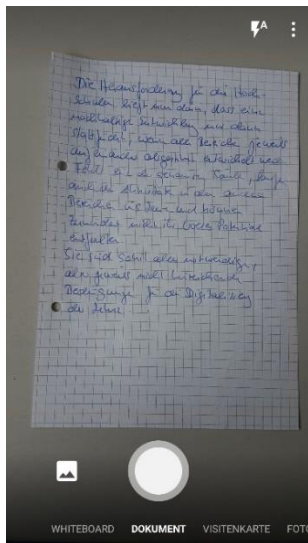 Die Herausforderung für die Hoch-
schulen liegt nun darin, dass eine
nachhaltige Entwicklung nur dann
stattfindet, wenn alle Bereiche jeweils
aufeinander abgestimmt entwickelt werden
Fehlt
Aktivitäten in den anderen
Bereichen ins Leere und können
zumindest nicht ihr volles Potential
entfalten
Sie sind somit alle notwendige,
aber jeweils nicht hinreichende
Bedingungen für die Digitalisierung
der Lehre
A
WHITEBOARD DOKUMENT VISITENKARTE FOTO